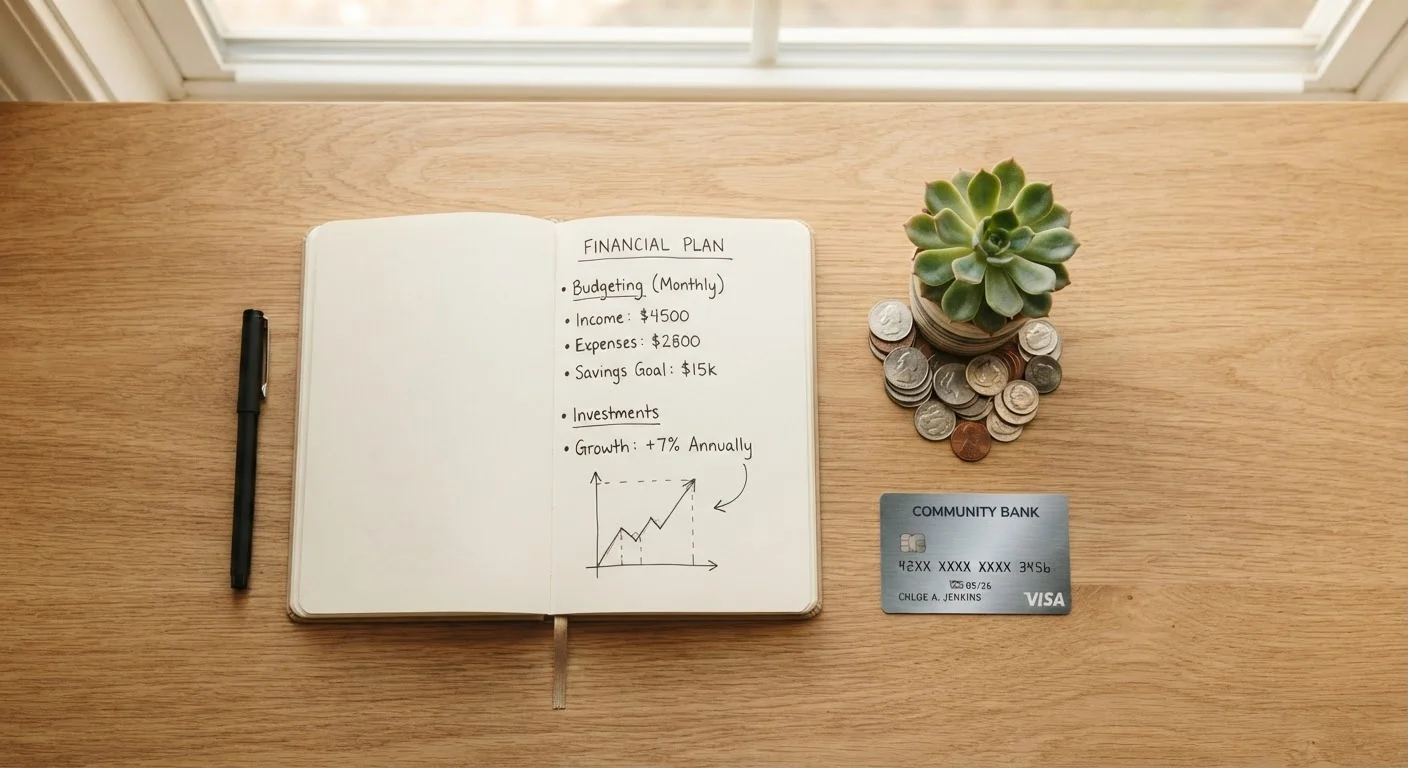 FINANCIAL PLAN
• Budgeting (Monthly)
• Income: $4500
• Expenses: $2800
• Savings Goal: $15k
• Investments
• Growth: +7% Annually
COMMUNITY BANK
42XX XXXX XXXX 3456
05/26
CHLGE A. JENKINS
VISA